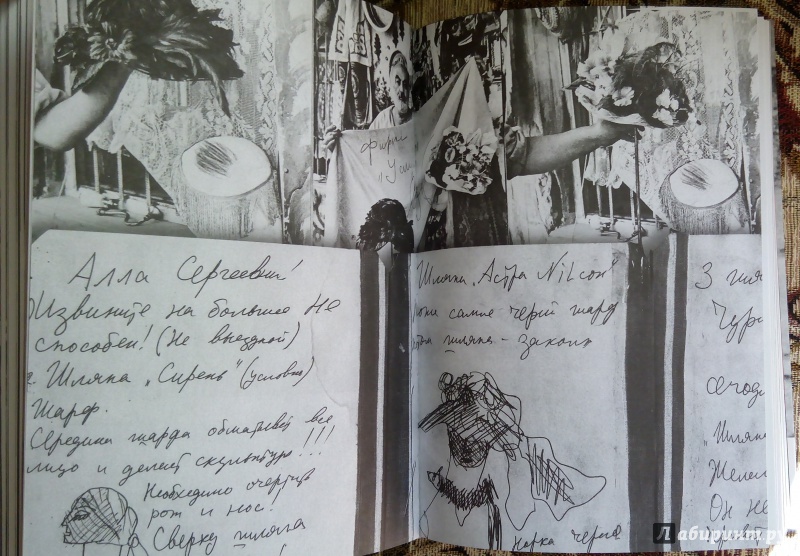 фирм
"Уси
Алла Сергеевна!
Извините на большее не
способен! (Не выездной)
Шляпа „Сирень" (условно)
Шарф.
Середина шарфа обматывает все
лицо и делает скульптуру!!!
Необходимо очертить
рот и нос!
Сверху шляпа
Шляпа „Астра Nilson"
самое черный шарф
шляпа - законч
черная
3 шля
Чура
сегод
„Шляп
Желе
Он не
Лабиринт.ру